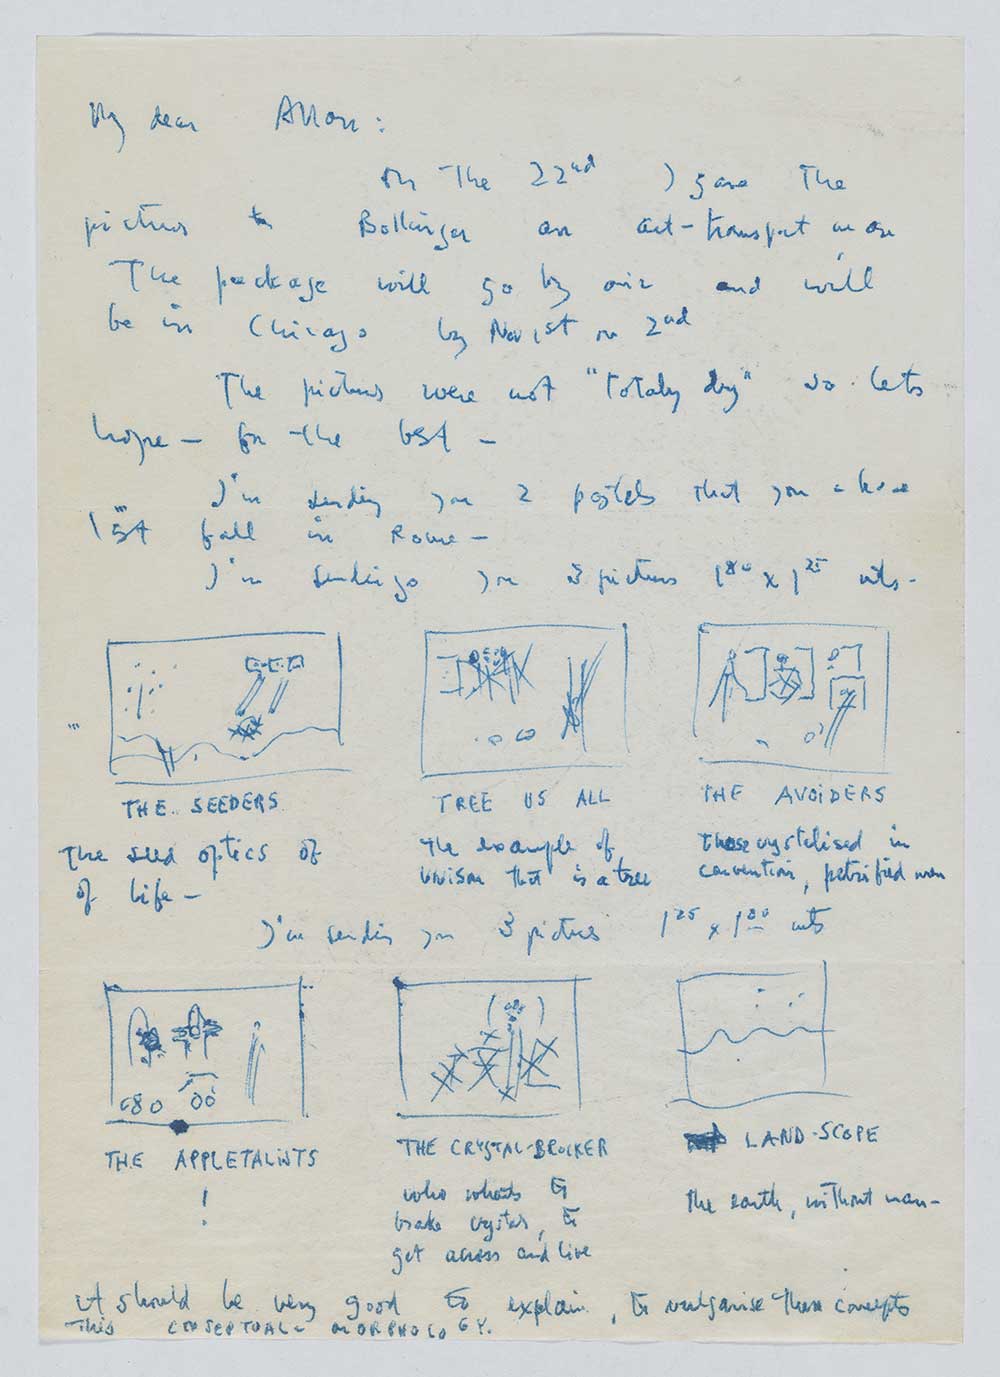 My dear Allan:
On the 22nd I gave the
pictures to Bollinger an art-transport man
The package will go by air and will
be in Chicago by Nov 1st or 2nd
The pictures were not "totaly dry" so lets
hope — for the best —
I'm sending you 2 pastels that you
last fall in Rome —
I'm sending you 3 pictures 1⁸⁰ x 1²⁵ mts-
THE SEEDERS TREE US ALL THE AVOIDERS
The seed optics of The example of Those crystalised in
of life — unison that is a tree convention, petrified men
I'm sending you 3 pictures 1²⁵ x 1⁸⁰ mts
THE APPLETALISTS THE CRYSTAL-BROCKER LAND-SCOPE
! who whants to The earth, without man-
brake crystal, to
get across and live
it should be very good to explain, to vulgarise these concepts
This CONSEPTUAL- MORPHOLOGY.